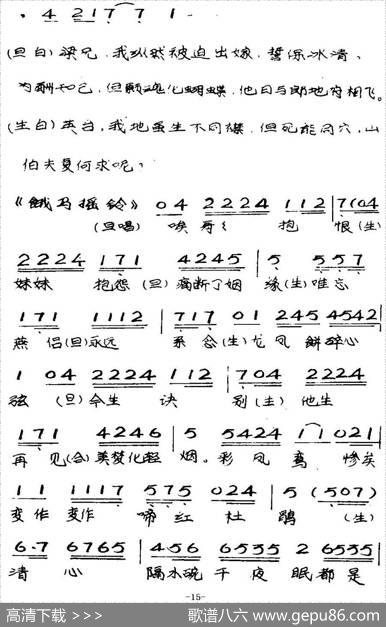 . 4 2 1 7 7 1 .
(旦白) 梁兄，我纵然被迫出嫁，誓保冰清，
为酬知己，但愿魂化蝴蝶，他日与郎地府相飞。
(生白) 英台，我地虽生不同襟，但死能同穴，山
伯夫复何求呢，
《饿马摇铃》 0 4 2 2 2 4 1 1 2 | 7 1 0 4
(旦唱) 唉哥哥 抱 恨 (生)
2 2 2 4 1 7 1 4 2 4 5 | 5 5 5 7
妹妹 抱怨 (旦) 痛断了姻 缘 (生) 唯忘
1 7 1 1 1 1 2 | 7 1 7 0 1 2 4 5 4 5 4 2 |
燕侣 (旦) 永远 系念 (生) 龙凤 解碎心
1 0 4 2 2 2 4 1 1 2 | 7 0 4 2 2 2 4
弦 (旦) 今生 诀 别 (生) 他生
1 7 1 4 2 4 6 | 5 5 4 2 4 1 1 0 2 1 |
再见 (合) 美梦化轻 烟。彩凤 鸾 惨矣
1 1 1 1 1 7 5 7 5 0 2 4 | 5 (5 0 7)
变作 变作 啼红 杜 鹃 (生)
6 · 7 6 7 6 5 | 4 · 5 6 6 5 3 5 2 6 5 3 5 |
清心 隔水流 千夜 眠都是
-15-
高清下载 >>> 歌谱八六 www.gepu86.com